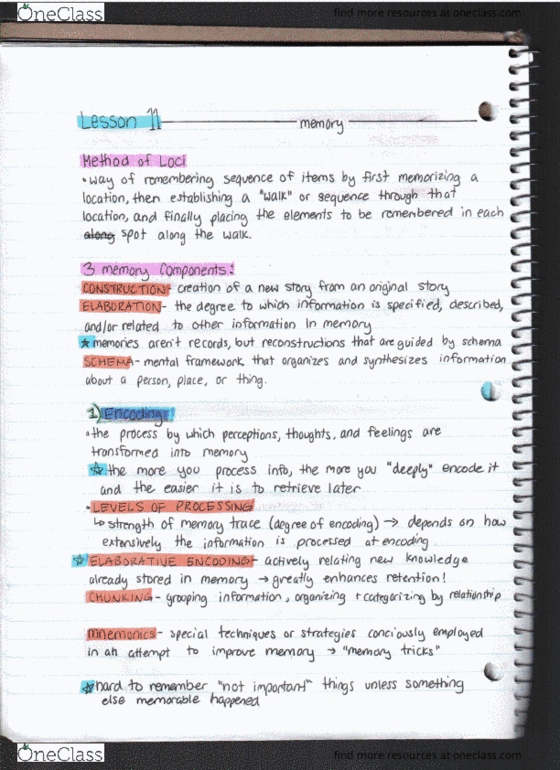 OneClass
find more resources at oneclass.com
Lesson 11 memory
Method of Loci
• way of remembering sequence of items by first memorizing a
location, then establishing a "walk" or sequence through that
location, and finally placing the elements to be remembered in each
along spot along the walk.
3 memory components:
CONSTRUCTION - creation of a new story from an original story
ELABORATION - the degree to which information is specified, described,
and/or related to other information in memory
☆ memories aren't records, but reconstructions that are guided by schema
SCHEMA - mental framework that organizes and synthesizes information
about a person, place, or thing.
1) Encoding:
• the process by which perceptions, thoughts, and feelings are
transformed into memory
☆ the more you process info, the more you "deeply" encode it
and the easier it is to retrieve later
• LEVELS OF PROCESSING
↳ strength of memory trace (degree of encoding) → depends on how
extensively the information is processed at encoding
☆ ELABORATIVE ENCODING - actively relating new knowledge
already stored in memory → greatly enhances retention!
CHUNKING - grouping information, organizing + categorizing by relationship
mnemonics - special techniques or strategies conciously employed
in an attempt to improve memory → "memory tricks"
☆ hard to remember "not important" things unless something
else memorable happened
OneClass
find more resources at oneclass.com